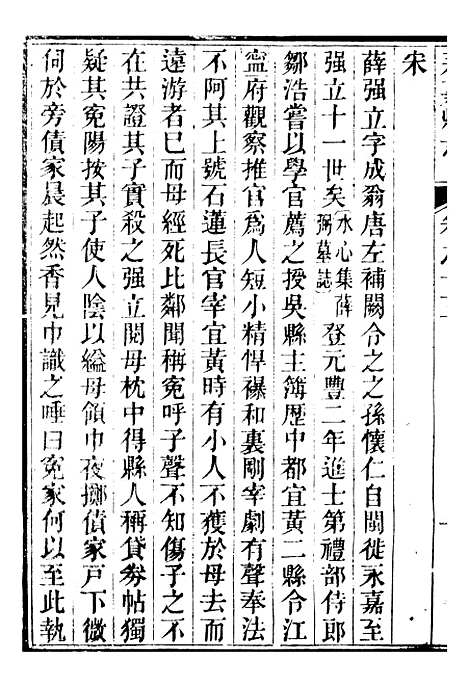 宋
薛强立字成翁唐左補闕令之之孫懷仁自閩徙永嘉至
强立十一世矣水心集薛弼墓誌登元豐二年進士第禮部侍郎
鄒浩嘗以學官薦之授吳縣主簿歷中都宜黃二縣令江
寧府觀察推官爲人短小精悍襮和裏剛宰劇有聲奉法
不阿其上號石蓮長官宰宜黃時有小人不獲於母去而
遠游者已而母經死比鄰聞稱寃呼子聲不知傷子之不
在共證其子實殺之强立閱母枕中得縣人稱貸券帖獨
疑其寃陽按其子使人陰以縊母領巾夜擲債家戸下微
伺於旁債家晨起然香見巾識之唾曰寃家何以至此執